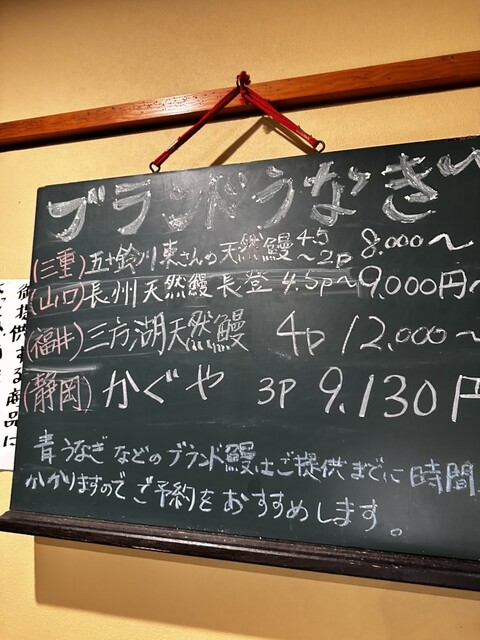 ブランドうなぎ
(三重) 五十鈴川 東さんの天然鰻 4.5〜2p 8.000〜
(山口) 長州天然鰻 長登 4.5p〜 9.000円
(福井) 三方湖天然鰻 4p 12.000〜
(静岡) かぐや 3P 9.130円
青うなぎなどのブランド鰻はご提供までに時間
かかりますのでご予約をおすすめします。
御提供する商品に